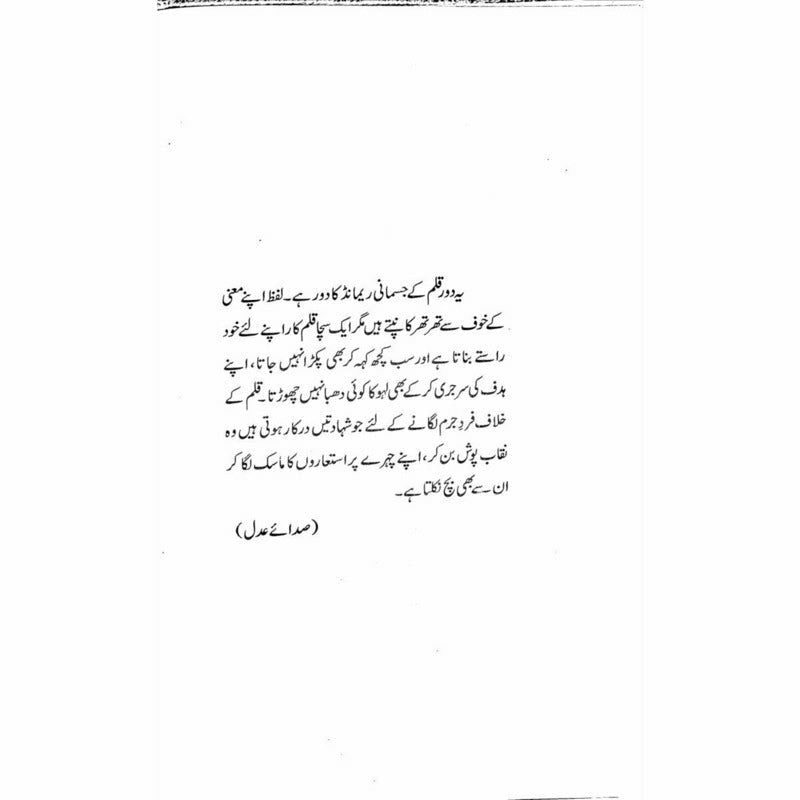 یہ دور قلم کے جسمانی ریمانڈ کا دور ہے۔ لفظ اپنے معنی
کے خوف سے تھر تھر کانپتے ہیں مگر ایک سچا قلم کار اپنے لئے خود
راستے بناتا ہے اور سب کچھ کہہ کر بھی پکڑا نہیں جاتا، اپنے
ہدف کی سرجری کر کے بھی لہو کا کوئی دھبا نہیں چھوڑتا۔ قلم کے
خلاف فردِ جرم لگانے کے لئے جو شہادتیں درکار ہوتی ہیں وہ
نقاب پوش بن کر، اپنے چہرے پر استعاروں کا ماسک لگا کر
ان سے بھی بچ نکلتا ہے۔
(صدائے عدل)